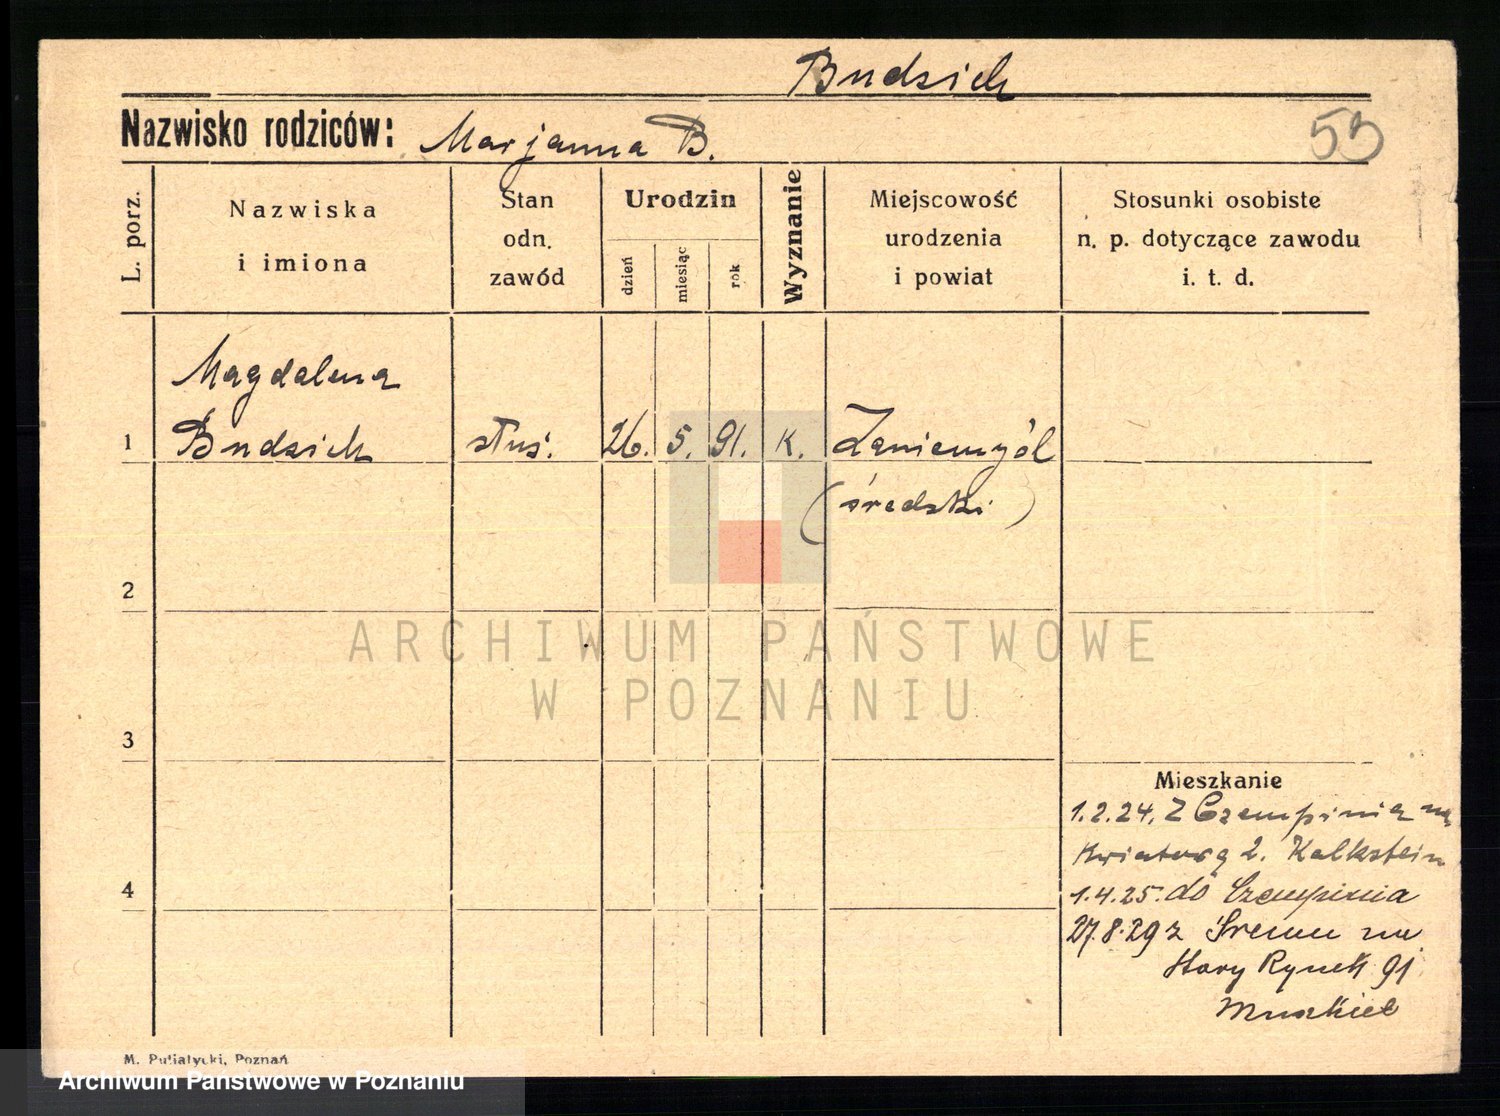 Budzich
Nazwisko rodziców: Marjanna B.
53
L. porz.
Nazwiska
i imiona
Stan
odn.
zawód
Urodzin
dzień
miesiąc
rok
Wyznanie
Miejscowość
urodzenia
i powiat
Stosunki osobiste
n. p. dotyczące zawodu
i. t. d.
Magdalena
1 Budzich służ. 26. 5. 91. k. Zaniemyśl
(średzki)
2
ARCHIWUM PAŃSTWOWE
W POZNANIU
3
Mieszkanie
1.2.24. Z Czempinia na
Kwiatową 2. Kalkstein
4
1.4.25. do Czempinia
27.8.29 z Śremu na
Stary Rynek 91
Muszkiet
M. Putiatycki, Poznań
Archiwum Państwowe w Poznaniu